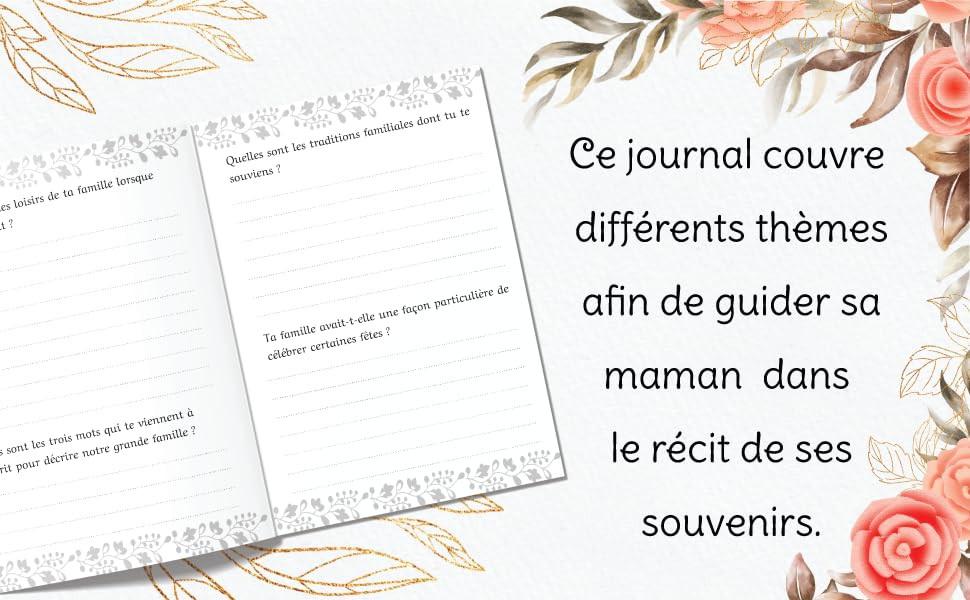 es loisirs de ta famille lorsque
t ?
s sont les trois mots qui te viennent à
rit pour décrire notre grande famille ?
Quelles sont les traditions familiales dont tu te
souviens ?
Ta famille avait-t-elle une façon particulière de
célébrer certaines fêtes ?
Ce journal couvre
différents thèmes
afin de guider sa
maman dans
le récit de ses
souvenirs.